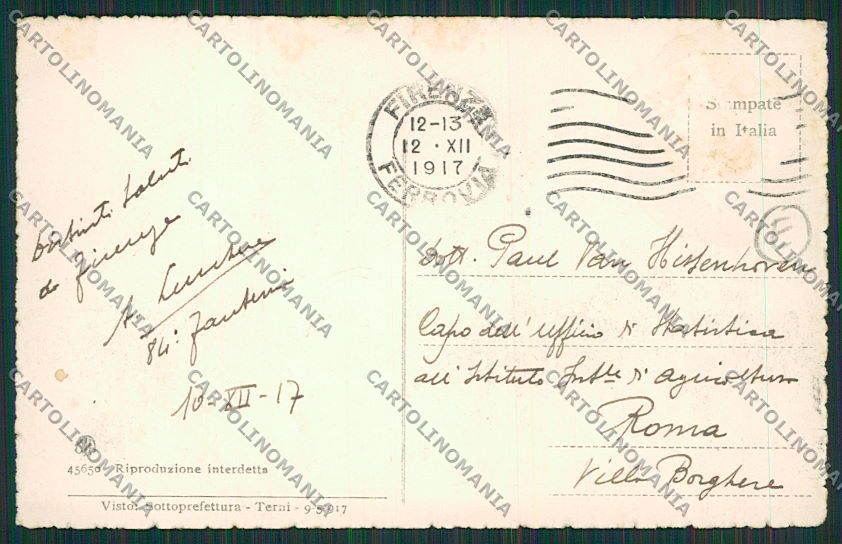 FIRENZE
FERROVIA
12-13
12 · XII
1917
Stampate
in Italia
Distinti saluti
da Firenze
A.
84° Fanteria
10-XII-17
Dott. Paul Van Hissenhoven
Capo dell'ufficio di Statistica
all'Istituto Int.le d'agricoltura
Roma
Villa Borghese
45650 - Riproduzione interdetta
Visto: Sottoprefettura - Terni - 9-5-917
CARTOLINOMANIA